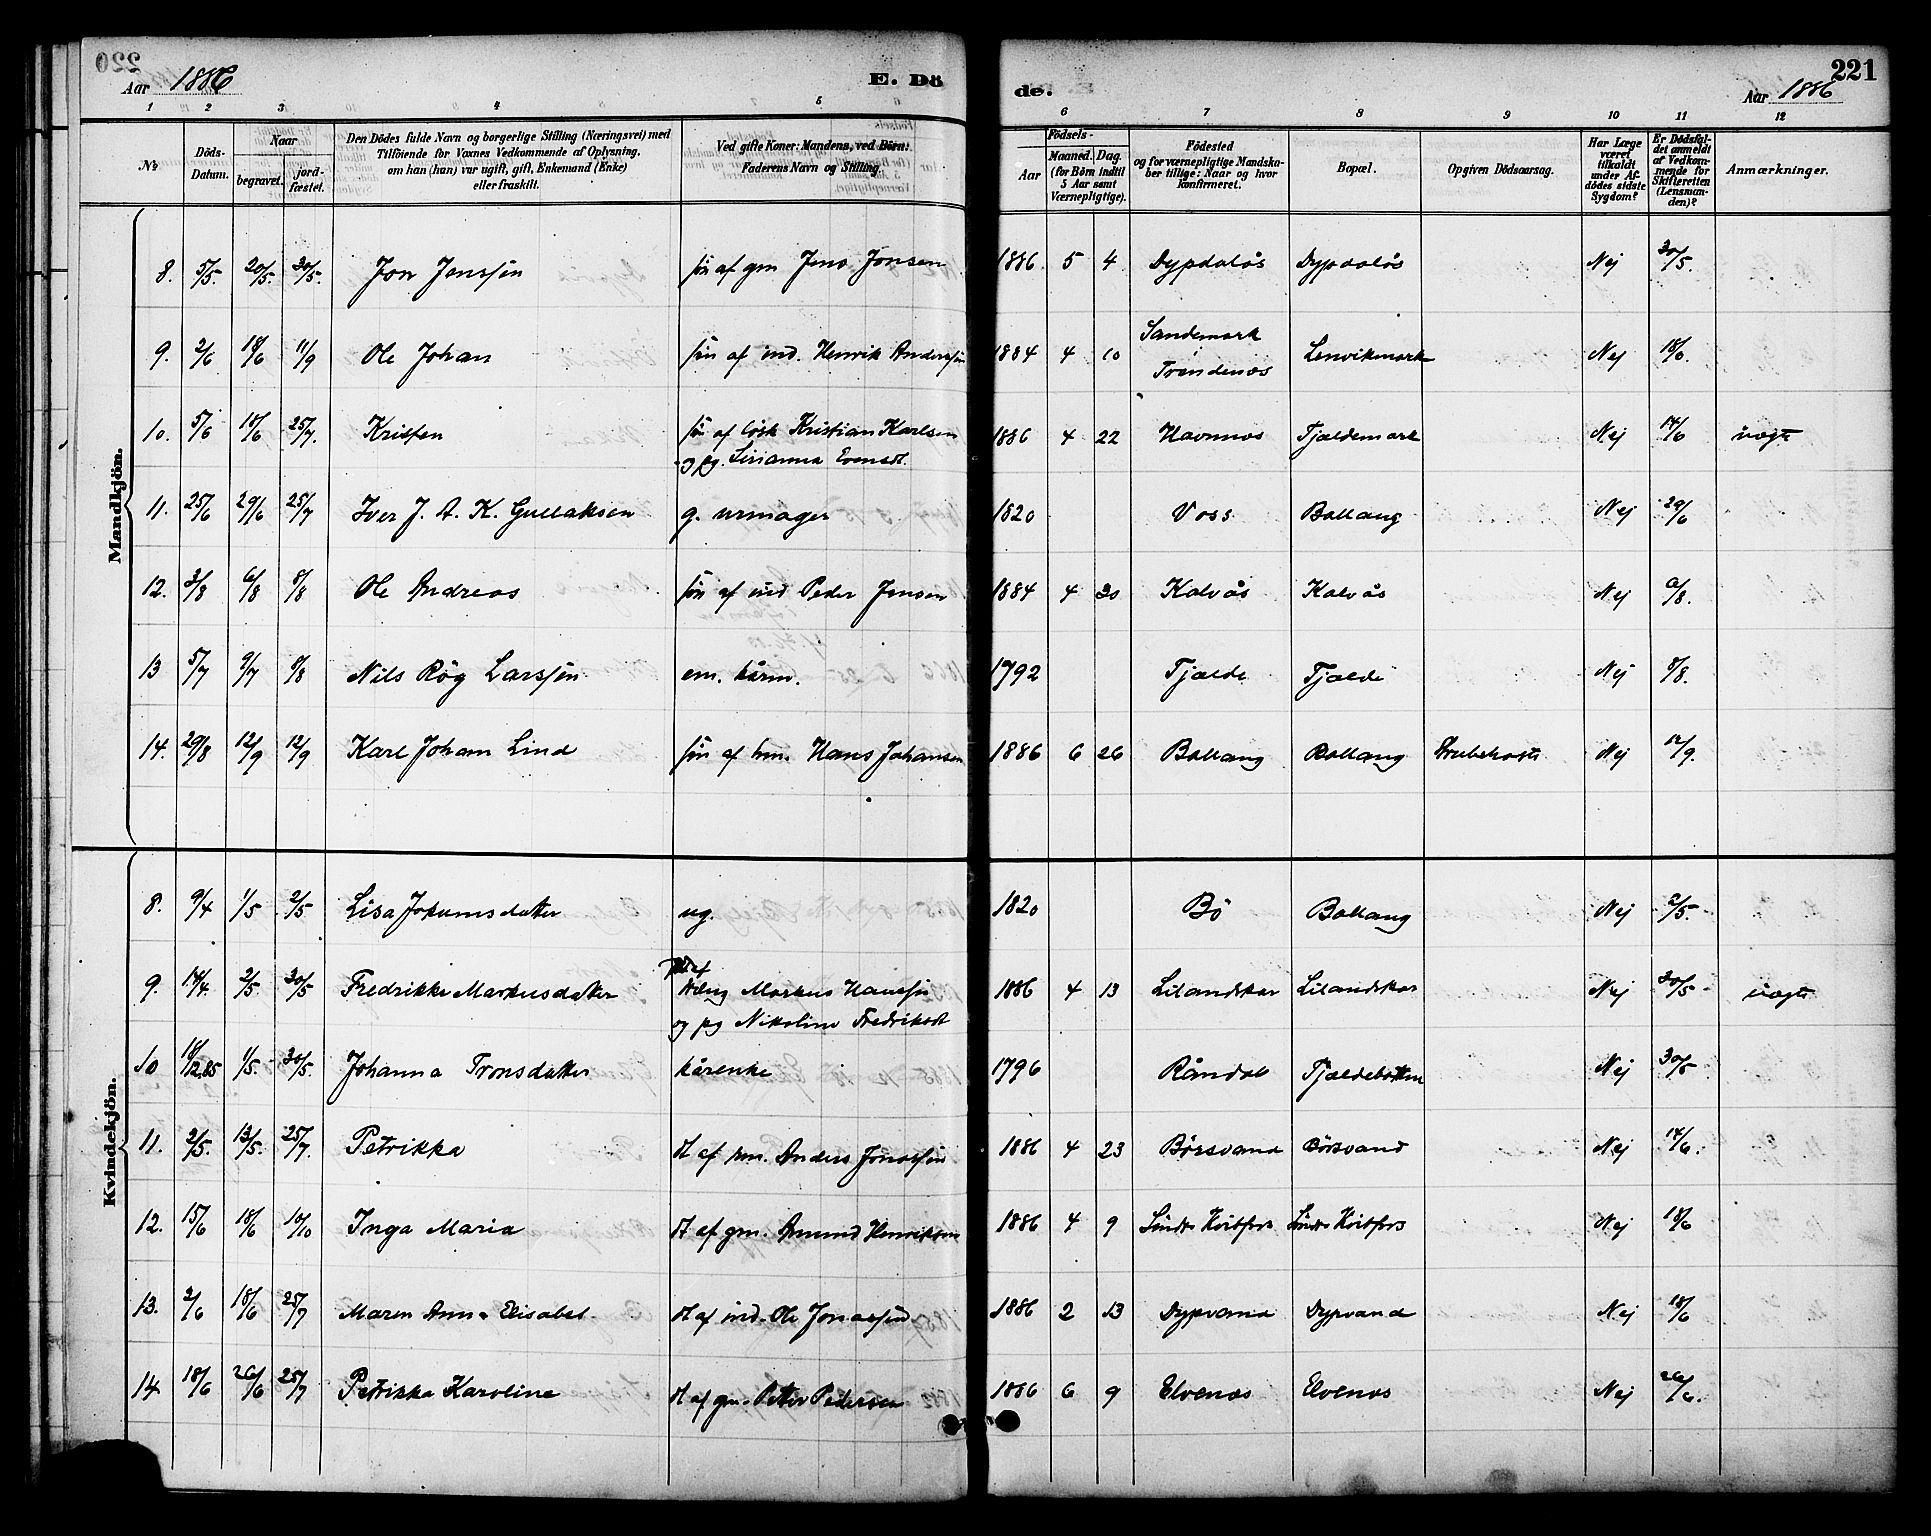 221
Aar 1886 E. Dö de. Aar 1886
1 2 3 4 5 6 7 8 9 10 11 12
№ Döds-Datum. Naar begravet. jord-fæstet. Den Dödes fulde Navn og borgerlige Stilling (Næringsvei) med Tilföiende for Voxnes Vedkommende af Oplysning, om han (hun) var ugift, gift, Enkemand (Enke) eller fraskilt. Ved gifte Koner: Mandens, ved Börn: Faderens Navn og Stilling. Födsels- Aar Maaned. Dag. (for Börn indtil 5 Aar samt Værnepligtige). Födested og for værnepligtige Mandska-ber tillige: Naar og hvor konfirmeret. Bopæl. Opgiven Dödsaarsag. Har Læge været tilkaldt under Af-dödes sidste Sygdom? Er Dödsfal-det anmeldt af Vedkom-mende for Skifteretten (Lensman-den)? Anmærkninger.
Mandkjön.
8. 5/5. 20/5. 30/5. Jon Jonssön sön af gm Jens Jonsen 1886. 5 4 Dypdalås Dypdalås Nej 30/5.
9. 2/6 18/6 11/9 Ole Johan sön af ind. Henrik Anderssön 1884 4 10 Sandemark Trondenæs Lenvikmark Nej 18/6.
10. 5/6 18/6 25/7. Kristen sön af løsk Kristian Karlsen 1886 4 22 Havnnæs Tjældemark Nej 14/6 uægte
og pg. Sirianna Evensdt.
11. 25/6 29/6 25/7 Iver J. A. K. Gullaksen g. urmager 1820 Voss Ballang Nej 29/6
12. 3/8 6/8 8/8 Ole Andreas sön af ind Peder Jensen 1884 4 30 Kalvås Kalvås Nej 6/8.
13 5/7 9/7 8/8 Nils Røg Larssön em. kårm. 1792 Tjælde Tjælde Nej 8/8.
14. 29/8 12/9 12/9 Karl Johan Lind sön af hm. Hans Johansen 1886 6 26 Ballang Ballang Strubehoste Nej 12/9.
Kvindekjön.
8. 9/4 1/5 2/5 Lisa Jokumsdatter ug. 1820 Bö Ballang Nej 2/5.
9. 14/4. 2/5. 30/5 Fredrikke Markusdatter Markus Hanssön 1886 4 13 Lilandskar Lilandskar Nej 30/5 uægte
og pg Nikoline Fredriksdt
10 18/12.85 1/5. 30/5. Johanna Tronsdatter kårenke 1796 Råndal Tjældebotten Nej 30/5
11. 2/5. 13/5. 25/7. Petrikka dt af hm. Anders Jonassön 1886 4 23 Börsvand Börsvand Nej 14/6.
12. 15/6 18/6 10/10 Inga Maria dt af gm. Amund Henriksen 1886 4 9 Söndre Kvitfors Söndre Kvitfors Nej 18/6
13. 2/6 18/6 25/7 Maren Anna Elisabet dt af ind. Ole Jonassön 1886 2 13 Dypvand Dypvand Nej 18/6
14 18/6 26/6 25/7 Petrikka Karoline dt af gm. Peter Pedersen 1886 6 9 Elvenes Elvenes Nej 26/6.